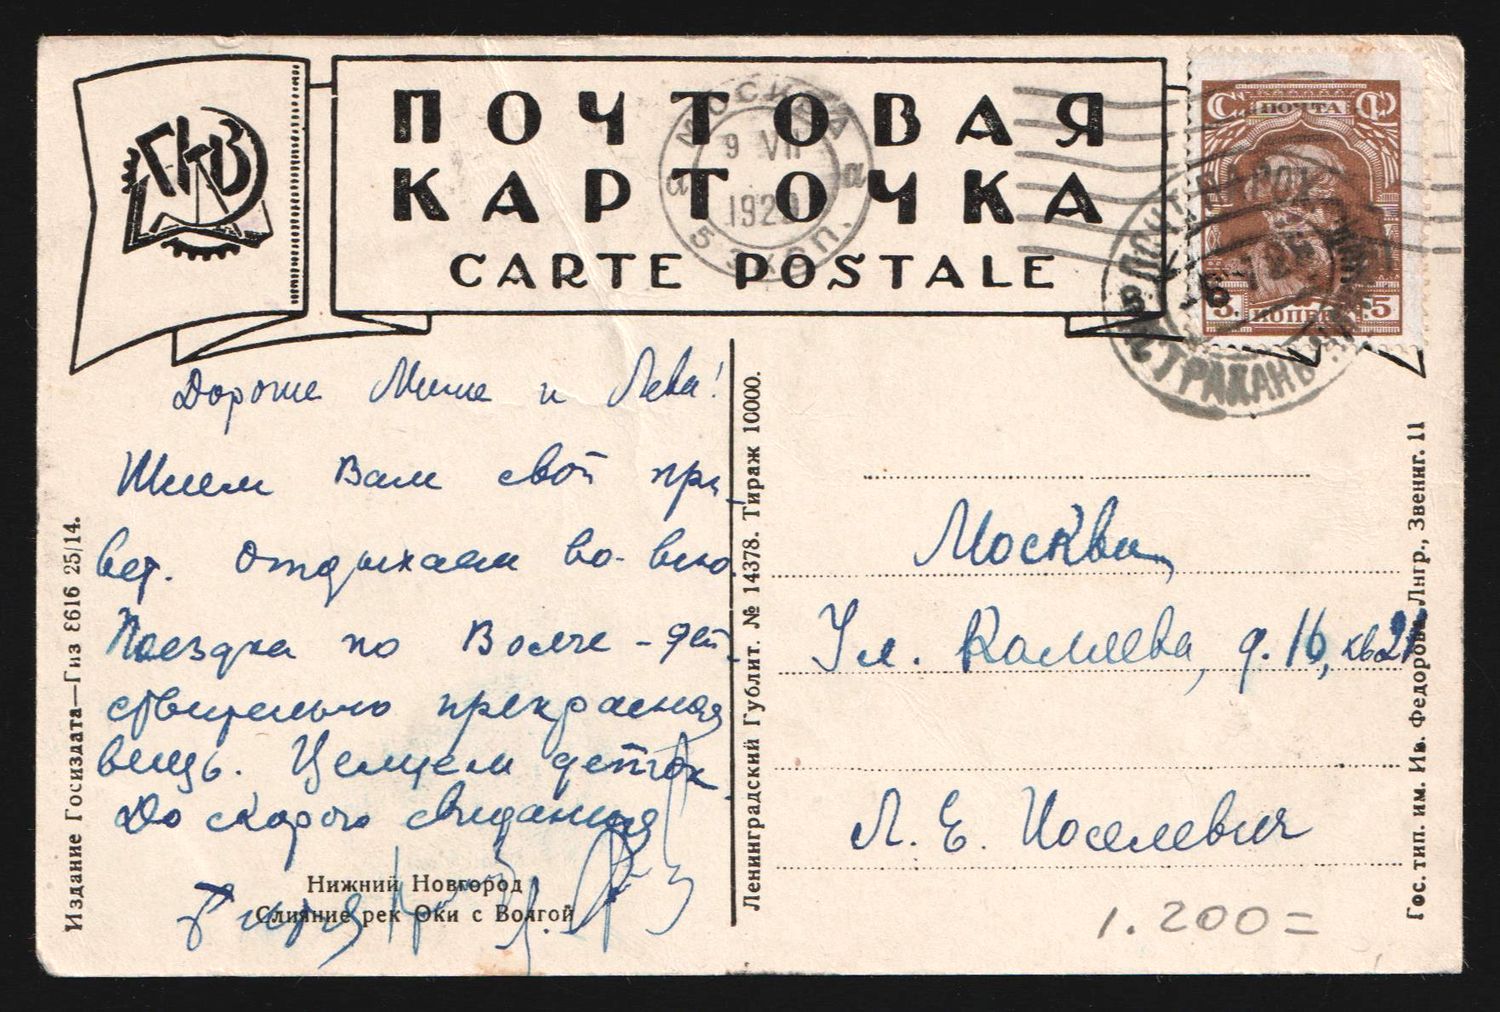 ГИЗ
ПОЧТОВАЯ
КАРТОЧКА
CARTE POSTALE
МОСКВА
9 VII
1929
5 ЭКСП.
а а
ПОЧТА
5 КОПЕЕК 5
АСТРАХАНЬ
Дорогие Миша и Лева!
Шлем Вам свой при-
вет. Отдыхаем во-всю.
Поездка по Волге - дей-
ствительно прекрасная
вещь. Целуем деток
До скорого свидания
Нижний Новгород
Слияние рек Оки с Волгой
Издание Госиздата—Гиз Е616 25/14.
Ленинградский Гублит. № 14378. Тираж 10000.
Москва
Ул. Каляева, д. 16, кв 21
Л. Е. Иоселевич
1.200=
Гос. тип. им. Ив. Федорова, Лнгр., Звениг. 11